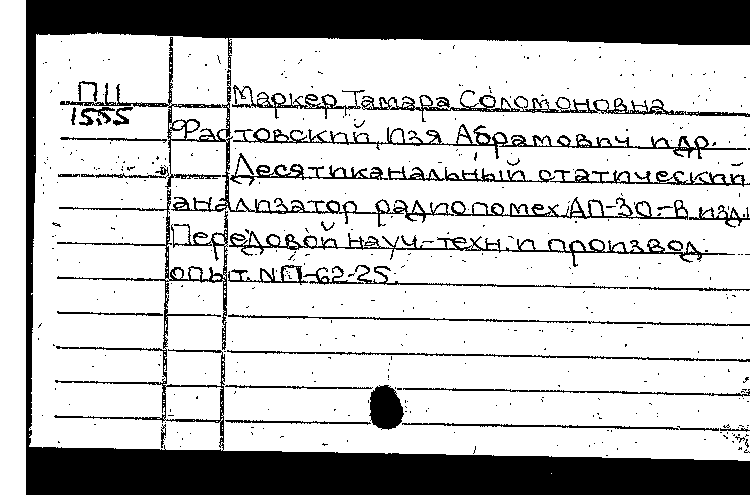 П11
1555
Маркер, Тамара Соломоновна.
Фастовский, Изя Абрамович и др.
Десятиканальный статический
анализатор радиопомех АП-30-В
Передовой науч.-техн. и производ.
опыт. №П-62-25.